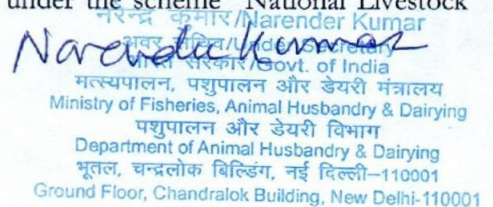 under the scheme "National Livestock
नरेन्द्र कुमार/Narender Kumar
Narender Kumar
अवर सचिव/Under Secretary
सरकार/Govt. of India
मत्स्यपालन, पशुपालन और डेयरी मंत्रालय
Ministry of Fisheries, Animal Husbandry & Dairying
पशुपालन और डेयरी विभाग
Department of Animal Husbandry & Dairying
भूतल, चन्द्रलोक बिल्डिंग, नई दिल्ली-110001
Ground Floor, Chandralok Building, New Delhi-110001